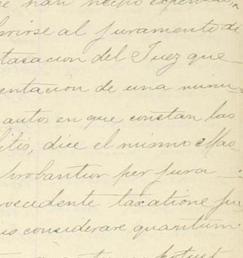 han hecho
al juramento de
tasacion del Juez que
entacion de una
autos en que constan las
litis, dice el mismo Mas
probantur per jura
rocedente taxatione
us considerare quantum